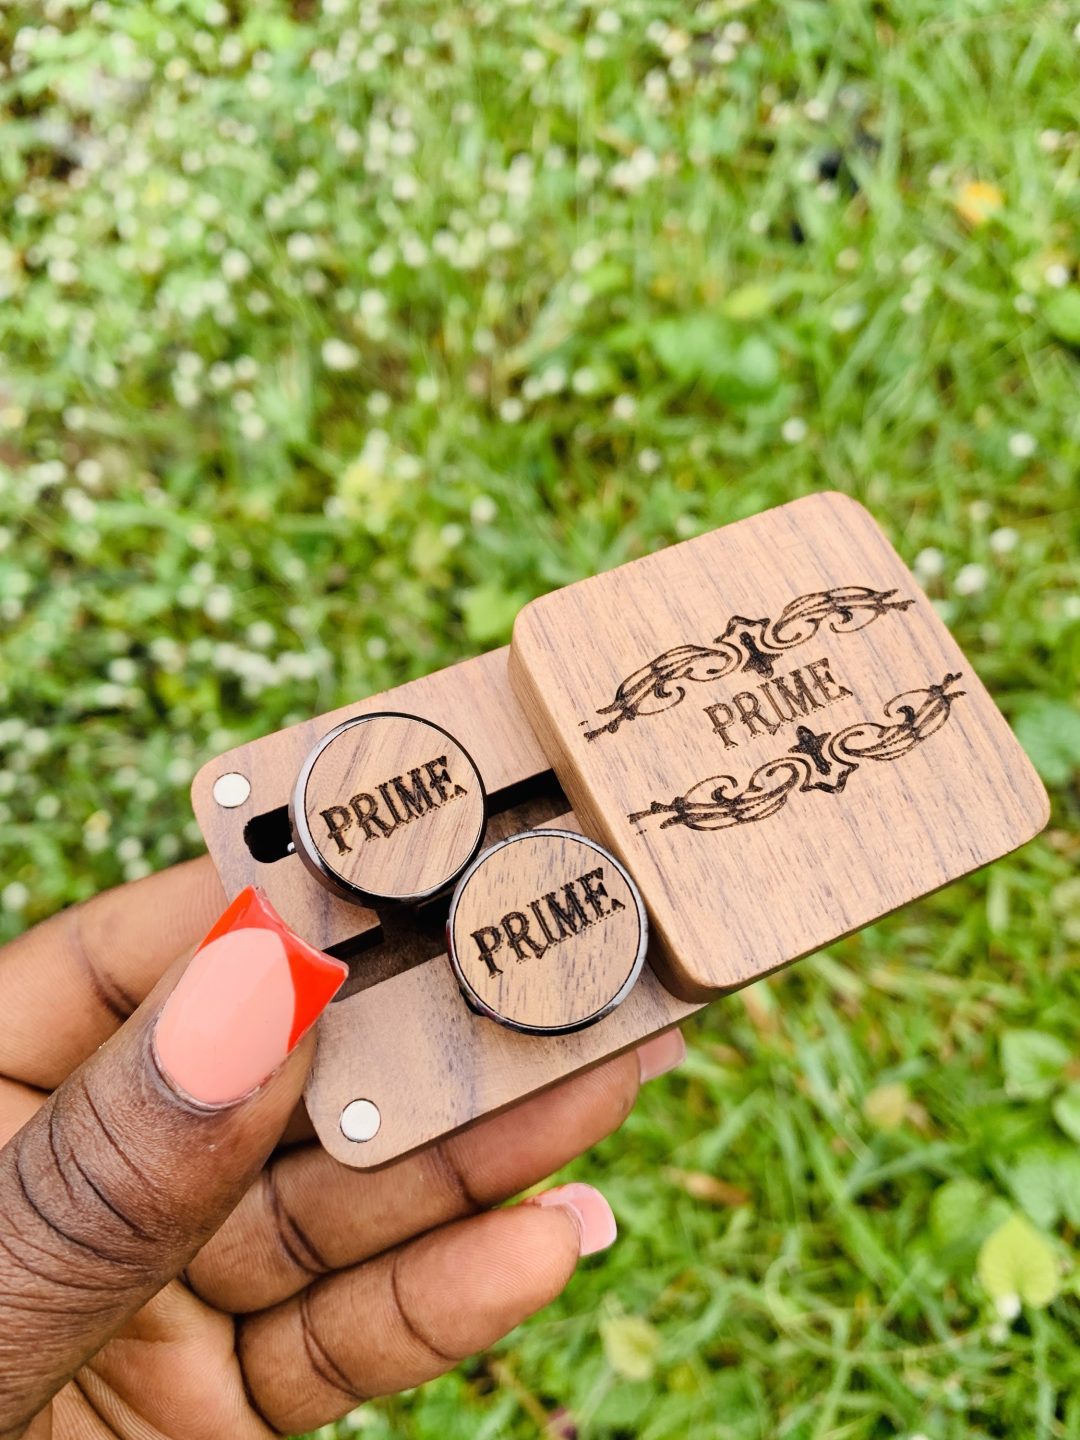 PRIME
PRIME
PRIME